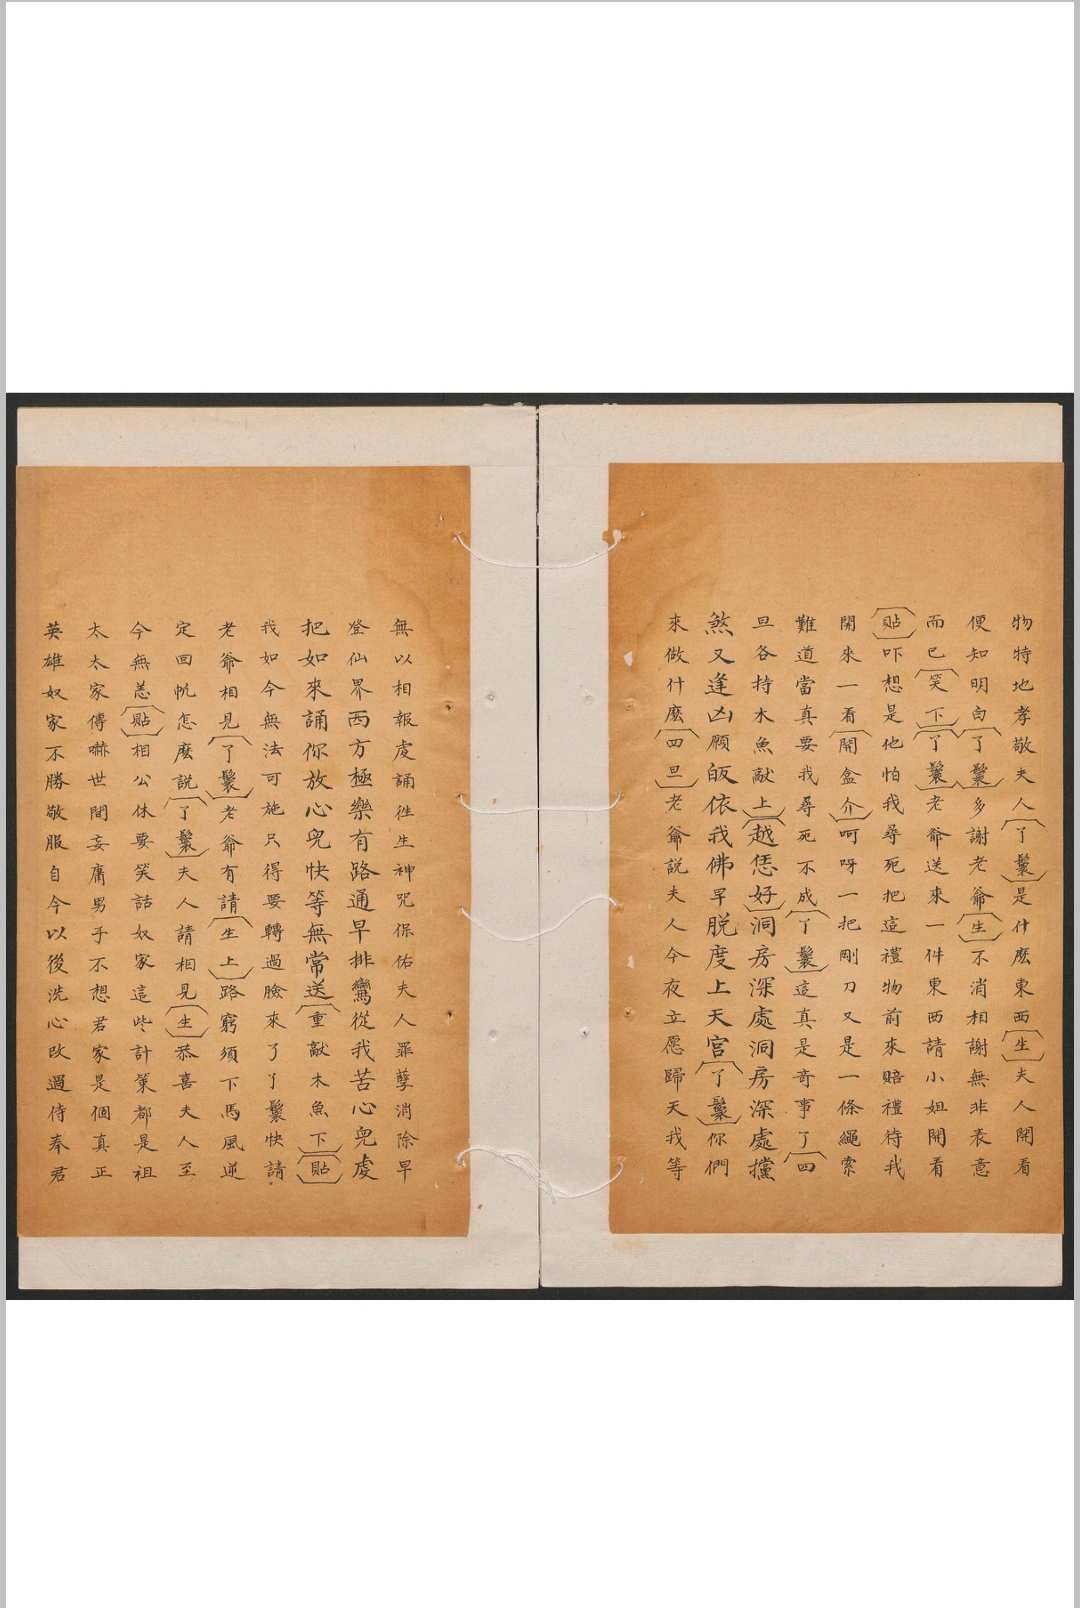 物特地孝敬夫人(丫鬟)是什麽東西(生)夫人開看
便知明白(丫鬟)多謝老爺(生)不消相謝無非表意
而已(笑下)(丫鬟)老爺送來一件東西請小姐開看
(貼)吓想是他怕我尋死把這禮物前來賠禮待我
開來一看(開盒介)呵呀一把剛刀又是一條繩索
難道當真要我尋死不成(丫鬟)這真是奇事了(四
旦各持木魚敲上)(越恁好)洞房深處洞房深處攩
煞又逢凶願皈依我佛早脱度上天宮(丫鬟)你們
來做什麽(四旦)老爺説夫人今夜立愿歸天我等
無以相報虔誦徃生神咒保佑夫人罪孽消除早
登仙界西方極樂有路通早排鸞從我苦心兒虔
把如來誦你放心兒快等無常送(重敲木魚下)(貼)
我如今無法可施只得要轉過臉來了丫鬟快請
老爺相見(丫鬟)老爺有請(生上)路窮須下馬風逆
定回帆怎麽説(丫鬟)夫人請相見(生)恭喜夫人至
今無恙(貼)相公休要笑話奴家這些計策都是祖
太太家傳嚇世間妄庸男子不想君家是個真正
英雄奴家不勝敬服自今以後洗心改過侍奉君